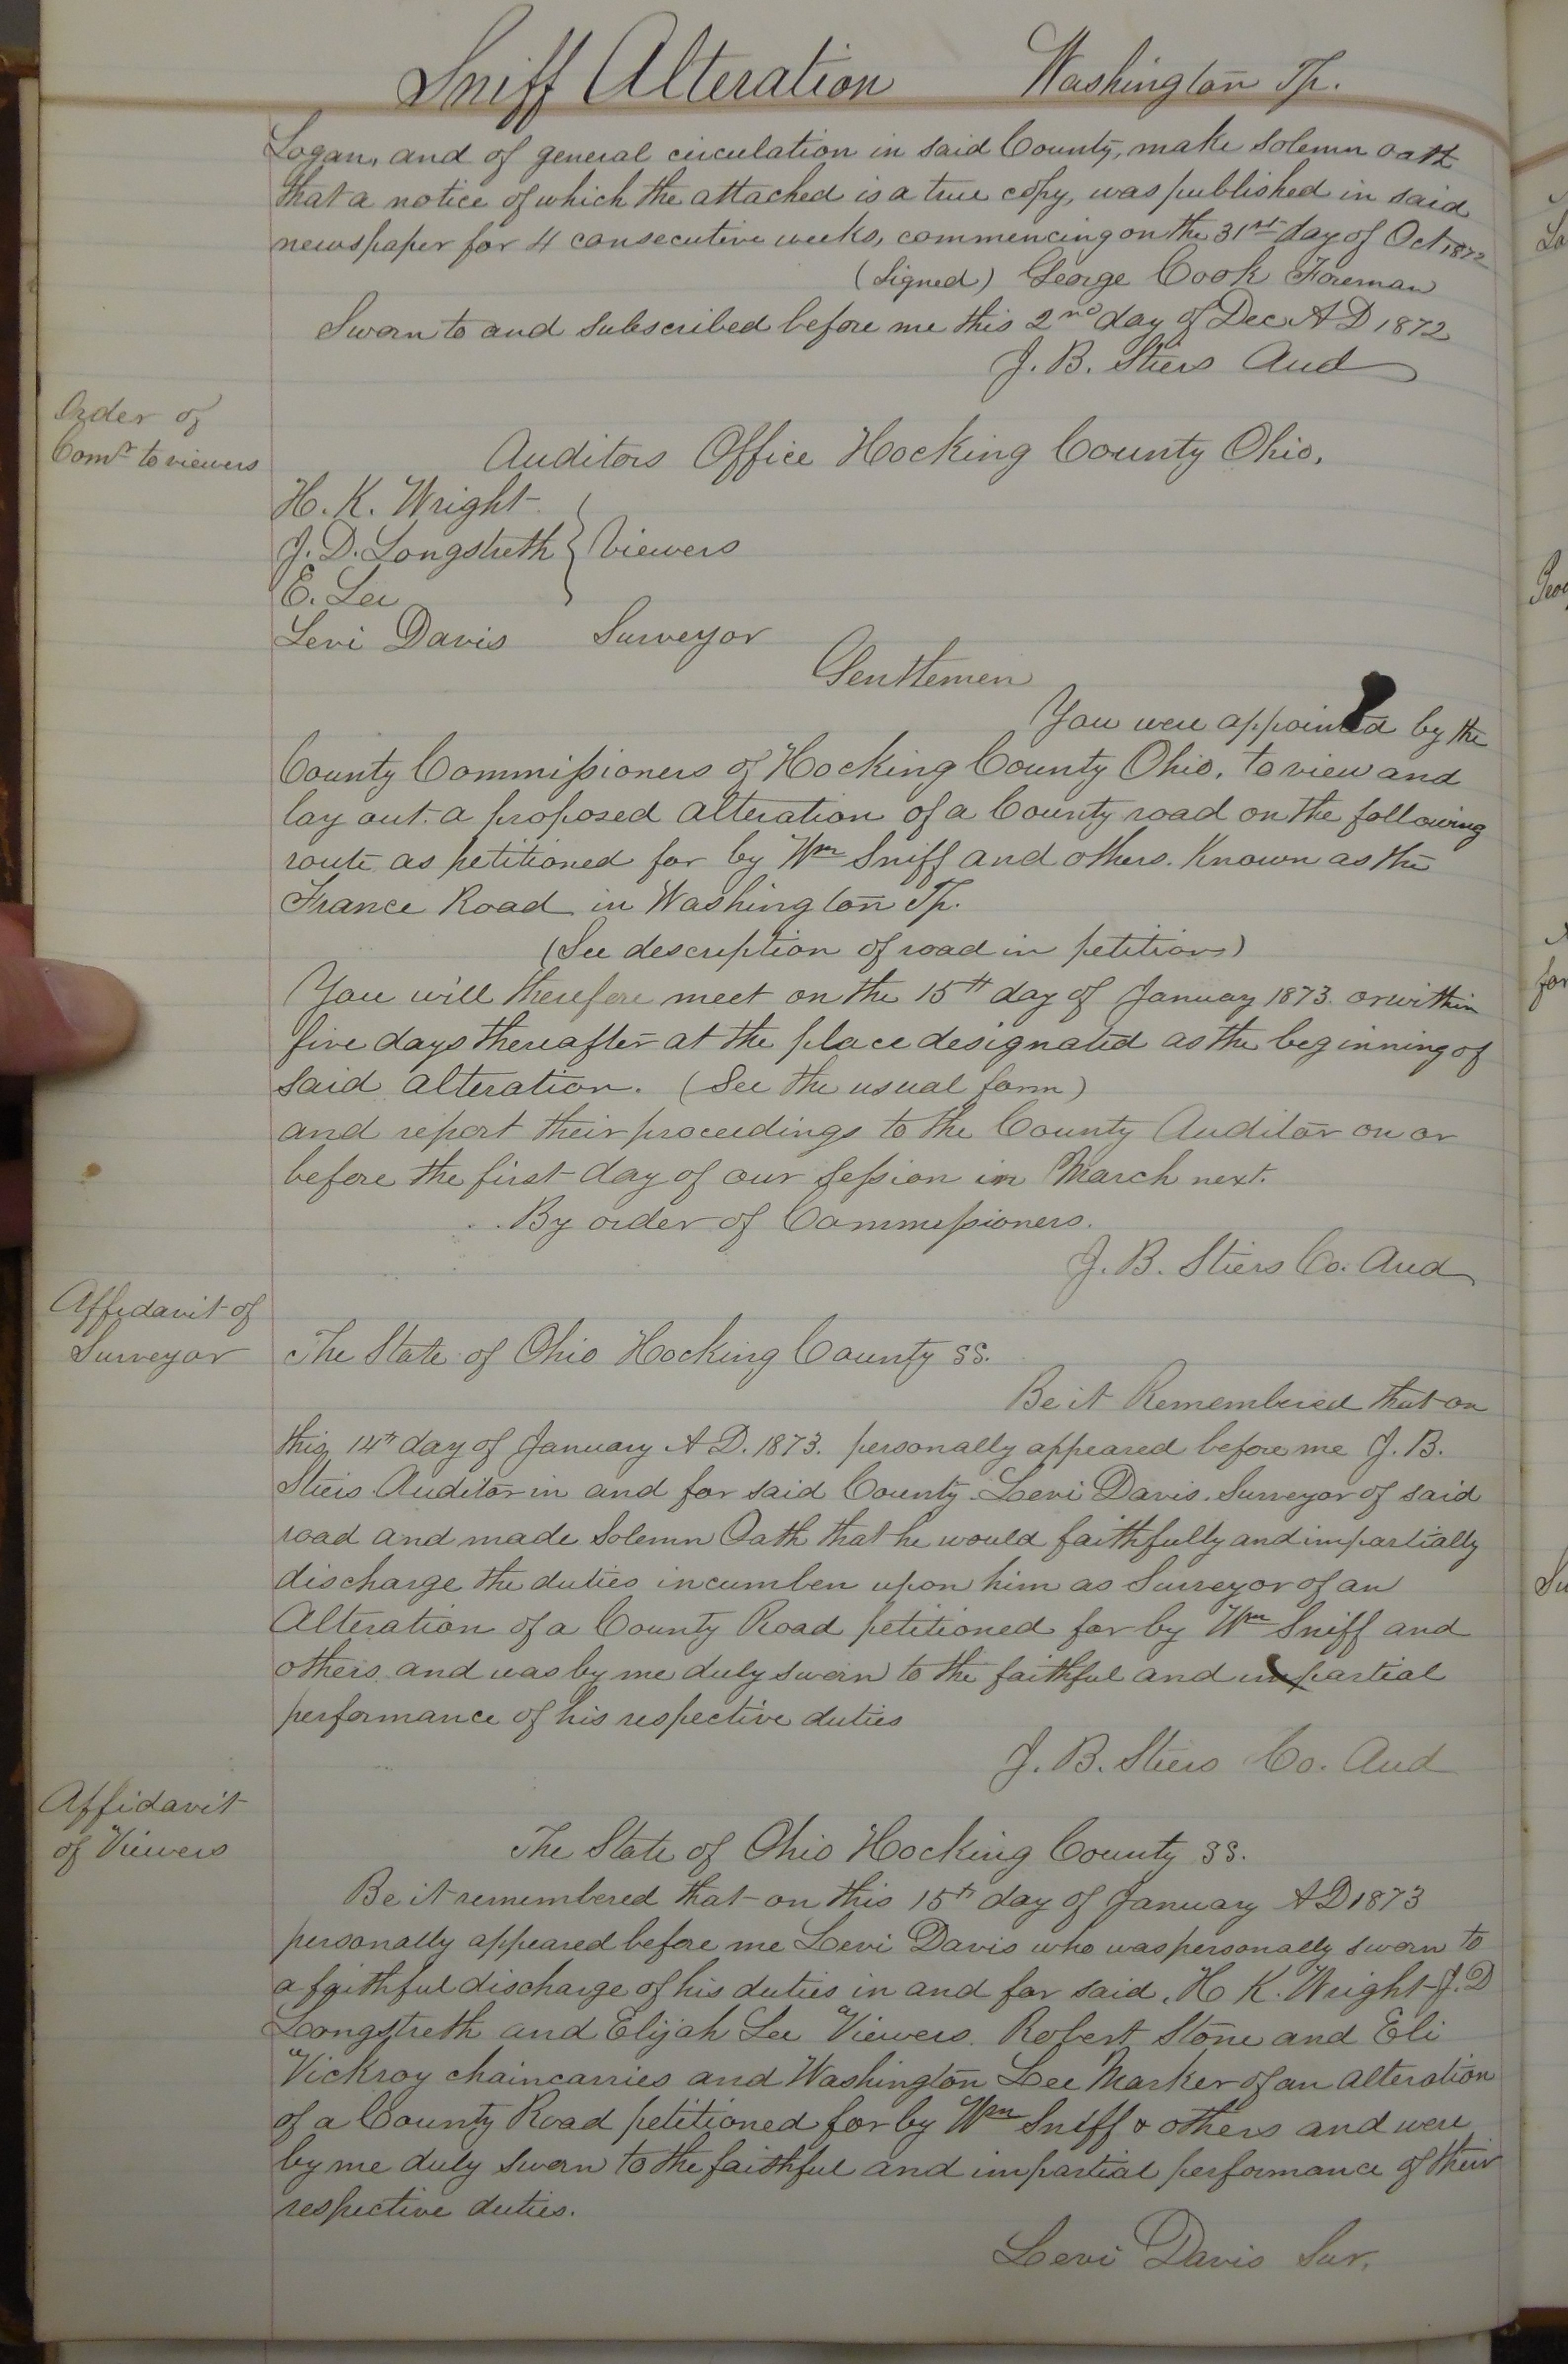 Sniff Alteration Washington Tp.
Logan, and of general circulation in said County, make solemn oath
that a notice of which the attached is a true copy, was published in said
newspaper for 4 consecutive weeks, commencing on the 31st day of Oct 1872
(Signed) George Cook Foreman
Sworn to and subscribed before me this 2nd day of Dec. A D 1872
J. B. Stiers Aud
Order of
Comrs to viewers
Auditors Office Hocking County Ohio,
H. K. Wright
J. D. Longstreth } Viewers
E. Lee
Levi Davis Surveyor
Gentlemen
You were appointed by the
County Commissioners of Hocking County Ohio, to view and
lay out a proposed alteration of a County road on the following
route as petitioned for by Wm Sniff and others. Known as the
France Road in Washington Tp.
(See description of road in petition)
You will therefore meet on the 15th day of January 1873. or within
five days thereafter at the place designated as the beginning of
said alteration. (See the usual form)
and report their proceedings to the County Auditor on or
before the first day of our session in March next.
By order of Commissioners.
J. B. Stiers Co. Aud
Affidavit of
Surveyor
The State of Ohio Hocking County ss.
Be it Remembered that on
this 14th day of January A D. 1873. personally appeared before me J. B.
Stiers Auditor in and for said County Levi Davis. Surveyor of said
road and made Solemn Oath that he would faithfully and impartially
discharge the duties incumben upon him as Surveyor of an
Alteration of a County Road petitioned for by Wm Sniff and
others and was by me duly sworn to the faithful and impartial
performance of his respective duties
J. B. Stiers Co. Aud
Affidavit
of Viewers
The State of Ohio Hocking County ss.
Be it remembered that on this 15th day of January A D 1873
personally appeared before me Levi Davis who was personally sworn to
a faithful discharge of his duties in and for said. H K. Wright J. D
Longstreth and Elijah Lee Viewers. Robert Stone and Eli
Vickroy chaincarries and Washington Lee Marker of an alteration
of a County Road petitioned for by Wm Sniff & others and were
by me duly sworn to the faithful and impartial performance of their
respective duties.
Levi Davis Sur.